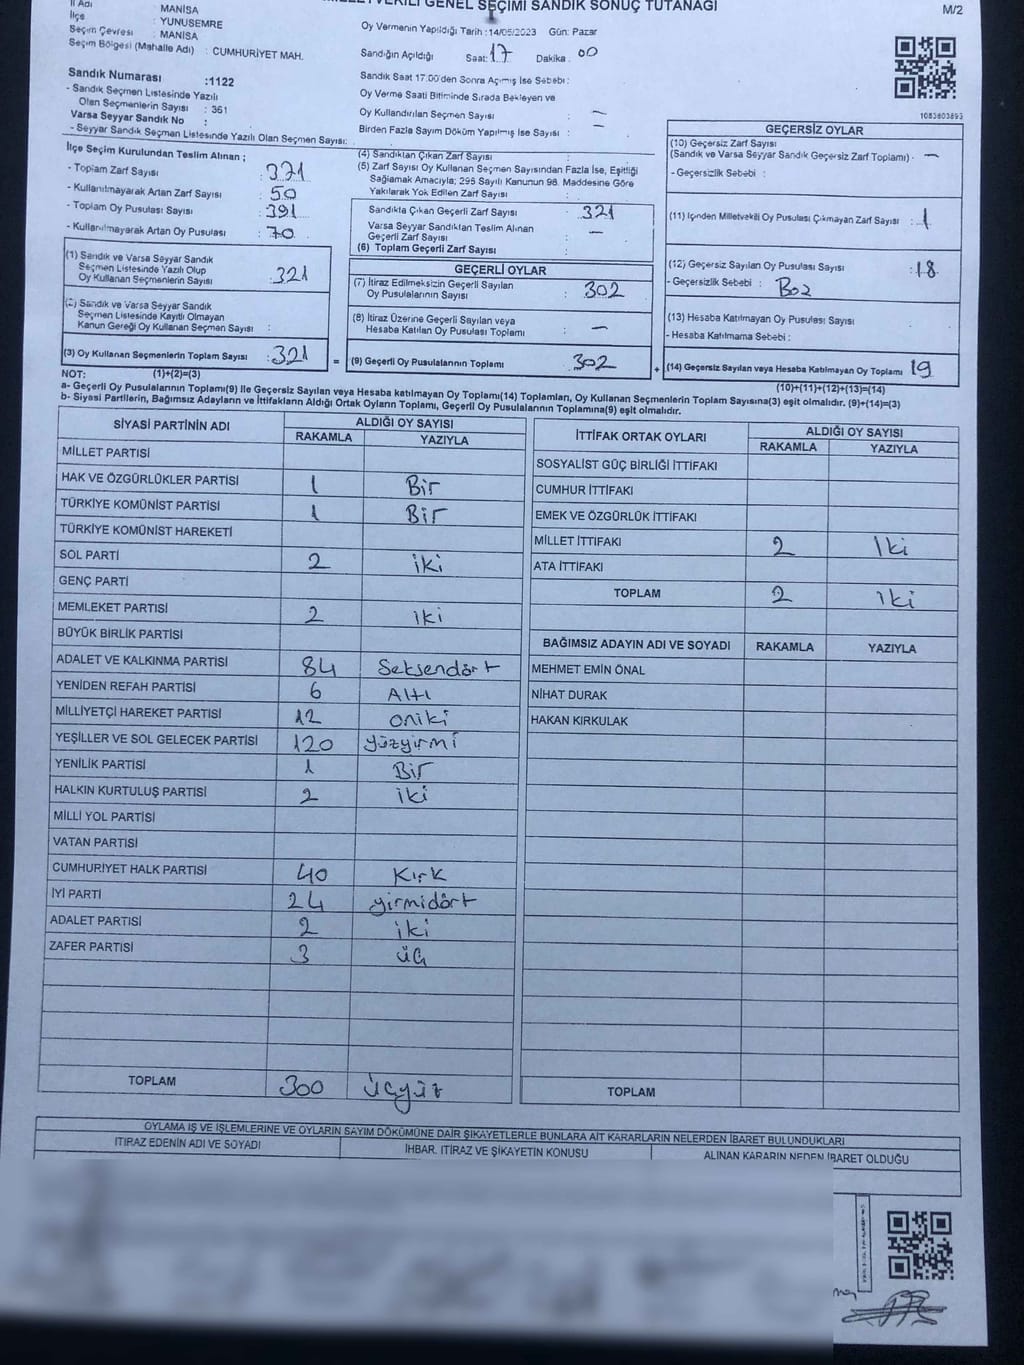 GENEL SEÇİMİ SANDIK SONUÇ TUTANAĞI
M/2
İl Adı : MANİSA
İlçe : YUNUSEMRE
Seçim Çevresi : MANİSA
Seçim Bölgesi (Mahalle Adı) : CUMHURİYET MAH.
Oy Vermenin Yapıldığı Tarih : 14/05/2023 Gün: Pazar
Sandığın Açıldığı Saat: 17 Dakika : 00
Sandık Saat 17:00'den Sonra Açmış İse Sebebi :
Oy Verme Saati Bitiminde Sırada Bekleyen ve
Oy Kullandırılan Seçmen Sayısı : —
Birden Fazla Sayım Döküm Yapılmış İse Sayısı : —
Sandık Numarası :1122
- Sandık Seçmen Listesinde Yazılı
Olan Seçmenlerin Sayısı : 361
Varsa Seyyar Sandık No :
- Seyyar Sandık Seçmen Listesinde Yazılı Olan Seçmen Sayısı:
1083603893
İlçe Seçim Kurulundan Teslim Alınan ;
- Toplam Zarf Sayısı : 371
- Kullanılmayarak Artan Zarf Sayısı : 50
- Toplam Oy Pusulası Sayısı : 391
- Kullanılmayarak Artan Oy Pusulası : 70
(1) Sandık ve Varsa Seyyar Sandık
Seçmen Listesinde Yazılı Olup
Oy Kullanan Seçmenlerin Sayısı : 321
(2) Sandık ve Varsa Seyyar Sandık
Seçmen Listesinde Kayıtlı Olmayan
Kanun Gereği Oy Kullanan Seçmen Sayısı :
(3) Oy Kullanan Seçmenlerin Toplam Sayısı : 321
(4) Sandıktan Çıkan Zarf Sayısı :
(5) Zarf Sayısı Oy Kullanan Seçmen Sayısından Fazla İse, Eşitliği
Sağlamak Amacıyla; 298 Sayılı Kanunun 98. Maddesine Göre
Yakılarak Yok Edilen Zarf Sayısı :
Sandıkta Çıkan Geçerli Zarf Sayısı : 321
Varsa Seyyar Sandıktan Teslim Alınan
Geçerli Zarf Sayısı : —
(6) Toplam Geçerli Zarf Sayısı :
GEÇERLİ OYLAR
(7) İtiraz Edilmeksizin Geçerli Sayılan
Oy Pusulalarının Sayısı : 302
(8) İtiraz Üzerine Geçerli Sayılan veya
Hesaba Katılan Oy Pusulası Toplamı : —
= (9) Geçerli Oy Pusulalarının Toplamı 302
GEÇERSİZ OYLAR
(10) Geçersiz Zarf Sayısı
(Sandık ve Varsa Seyyar Sandık Geçersiz Zarf Toplamı) - —
- Geçersizlik Sebebi :
(11) İçinden Milletvekili Oy Pusulası Çıkmayan Zarf Sayısı : 1
(12) Geçersiz Sayılan Oy Pusulası Sayısı : 18
- Geçersizlik Sebebi :
(13) Hesaba Katılmayan Oy Pusulası Sayısı :
- Hesaba Katılmama Sebebi :
+ (14) Geçersiz Sayılan veya Hesaba Katılmayan Oy Toplamı 19
NOT: (1)+(2)=(3)
(10)+(11)+(12)+(13)=(14)
a- Geçerli Oy Pusulalarının Toplamı(9) ile Geçersiz Sayılan veya Hesaba katılmayan Oy Toplamı(14) Toplamları, Oy Kullanan Seçmenlerin Toplam Sayısına(3) eşit olmalıdır. (9)+(14)=(3)
b- Siyasi Partilerin, Bağımsız Adayların ve İttifakların Aldığı Ortak Oyların Toplamı, Geçerli Oy Pusulalarının Toplamına(9) eşit olmalıdır.
SİYASİ PARTİNİN ADI ALDIĞI OY SAYISI
RAKAMLA YAZIYLA
MİLLET PARTİSİ
HAK VE ÖZGÜRLÜKLER PARTİSİ 1 Bir
TÜRKİYE KOMÜNİST PARTİSİ 1 Bir
TÜRKİYE KOMÜNİST HAREKETİ
SOL PARTİ 2 iki
GENÇ PARTİ
MEMLEKET PARTİSİ 2 iki
BÜYÜK BİRLİK PARTİSİ
ADALET VE KALKINMA PARTİSİ 84 Seksendört
YENİDEN REFAH PARTİSİ 6 Altı
MİLLİYETÇİ HAREKET PARTİSİ 12 oniki
YEŞİLLER VE SOL GELECEK PARTİSİ 120 yüzyirmi
YENİLİK PARTİSİ 1 Bir
HALKIN KURTULUŞ PARTİSİ 2 iki
MİLLİ YOL PARTİSİ
VATAN PARTİSİ
CUMHURİYET HALK PARTİSİ 40 Kırk
İYİ PARTİ 24 yirmidört
ADALET PARTİSİ 2 iki
ZAFER PARTİSİ 3 üç
TOPLAM 300 üçyüz
İTTİFAK ORTAK OYLARI ALDIĞI OY SAYISI
RAKAMLA YAZIYLA
SOSYALİST GÜÇ BİRLİĞİ İTTİFAKI
CUMHUR İTTİFAKI
EMEK VE ÖZGÜRLÜK İTTİFAKI
MİLLET İTTİFAKI 2 iki
ATA İTTİFAKI
TOPLAM 2 iki
BAĞIMSIZ ADAYIN ADI VE SOYADI RAKAMLA YAZIYLA
MEHMET EMİN ÖNAL
NİHAT DURAK
HAKAN KIRKULAK
TOPLAM
OYLAMA İŞ VE İŞLEMLERİNE VE OYLARIN SAYIM DÖKÜMÜNE DAİR ŞİKAYETLERLE BUNLARA AİT KARARLARIN NELERDEN İBARET BULUNDUKLARI
İTİRAZ EDENİN ADI VE SOYADI İHBAR, İTİRAZ VE ŞİKAYETİN KONUSU ALINAN KARARIN NEDEN İBARET OLDUĞU